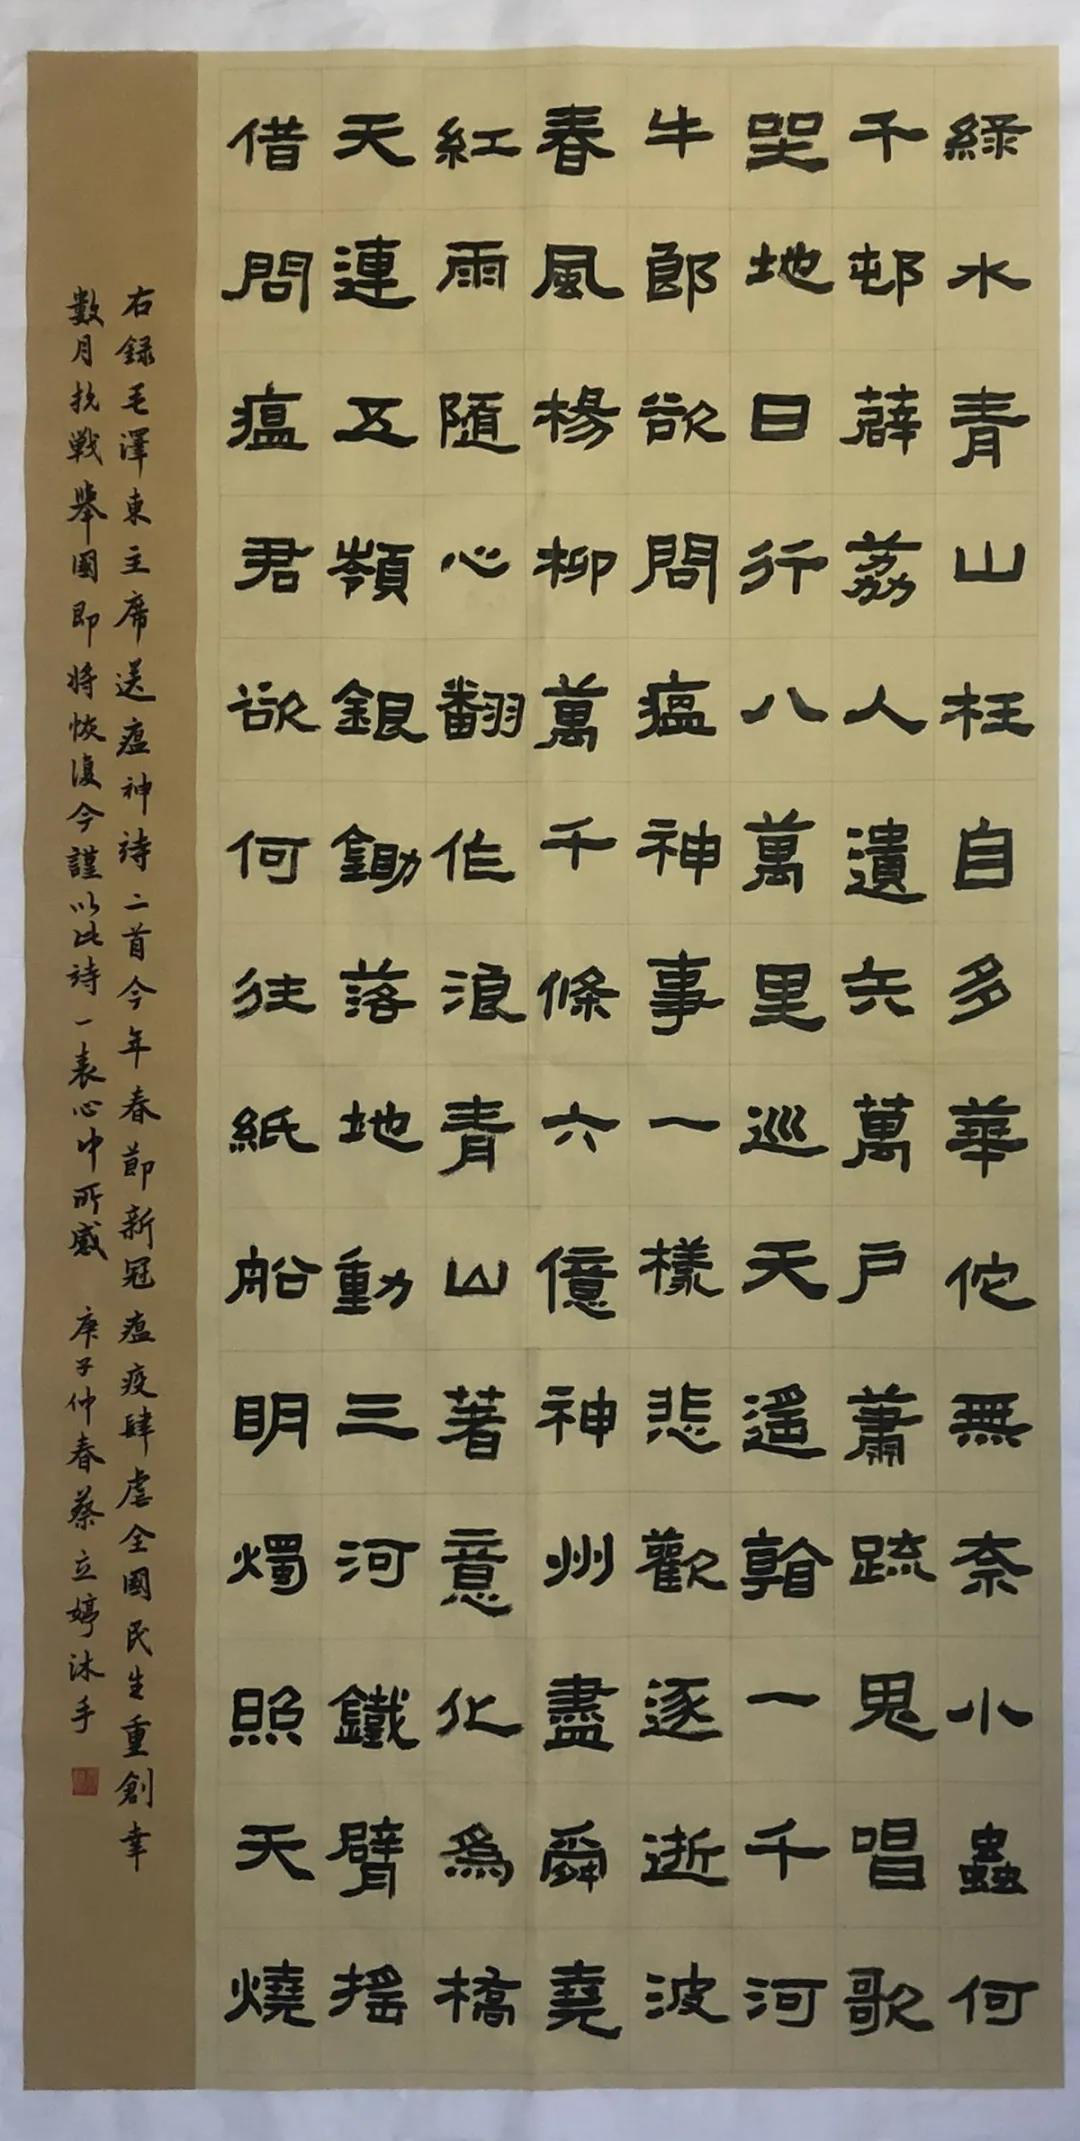 綠水青山枉自多華佗無奈小蟲何
千邨薜荔人遺矢萬戶蕭疏鬼唱歌
坐地日行八萬里巡天遙看一千河
牛郎欲問瘟神事一樣悲歡逐逝波
春風楊柳萬千條六億神州盡舜堯
紅雨隨心翻作浪青山著意化為橋
天連五嶺銀鋤落地動三河鐵臂搖
借問瘟君欲何往紙船明燭照天燒
右錄毛澤東主席送瘟神詩二首今年春節新冠瘟疫肆虐全國民生重創幸
數月抗戰舉國即將恢復今謹以此詩一表心中所感 庚子仲春蔡立婷沐手